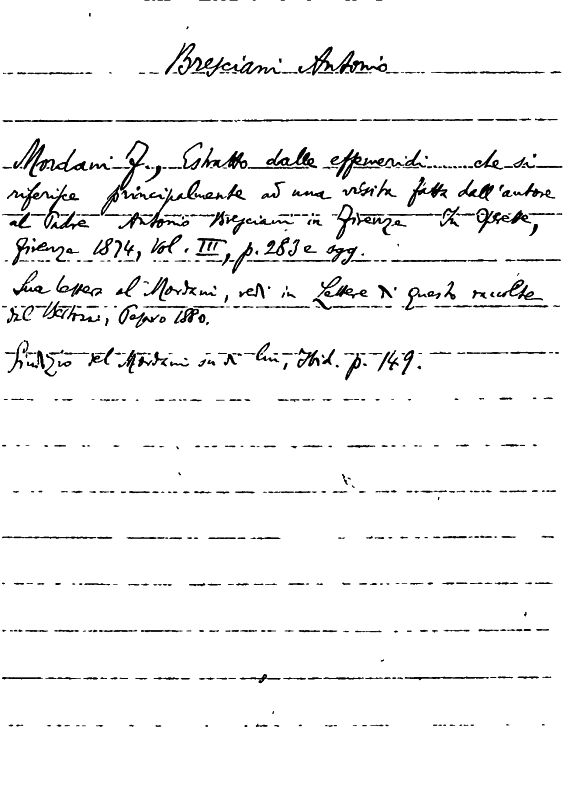 Bresciani Antonio
Mordani F., Estratto dalle effemeridi ..... che si
riferisce principalmente ad una visita fatta dall'autore
al Padre Antonio Bresciani in Firenze In Operette,
Firenze 1874, Vol. III, p. 283 e sgg.
Sua lettera al Mordani, vedi in Lettere di questo raccolte
dal Bertozzi, Pesaro 1880.
Giudizio del Mordani su di lui, Ibid. p. 149.